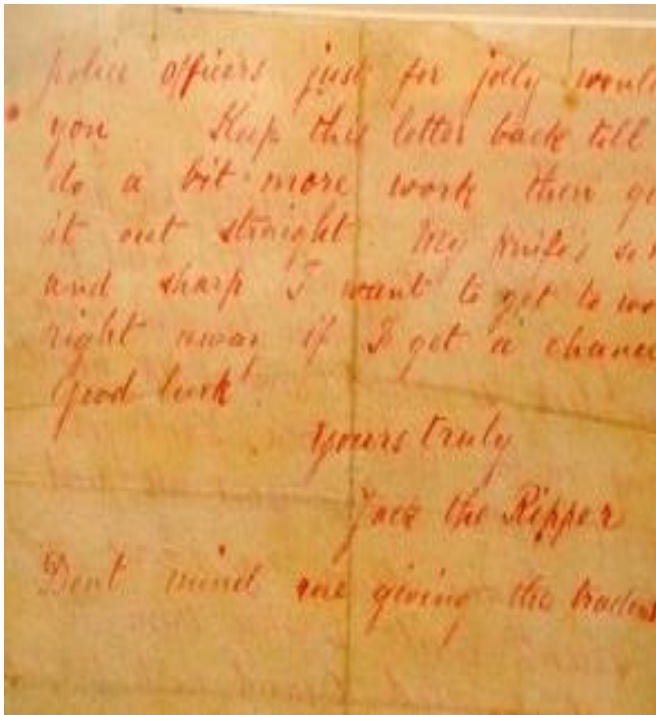 police officers just for jolly would
you Keep this letter back till
do a bit more work then gi
it out straight My Knife's so n
and sharp I want to get to wo
right away if I get a chance
Good luck.
Yours truly
Jack the Ripper
Dont mind me giving the trade